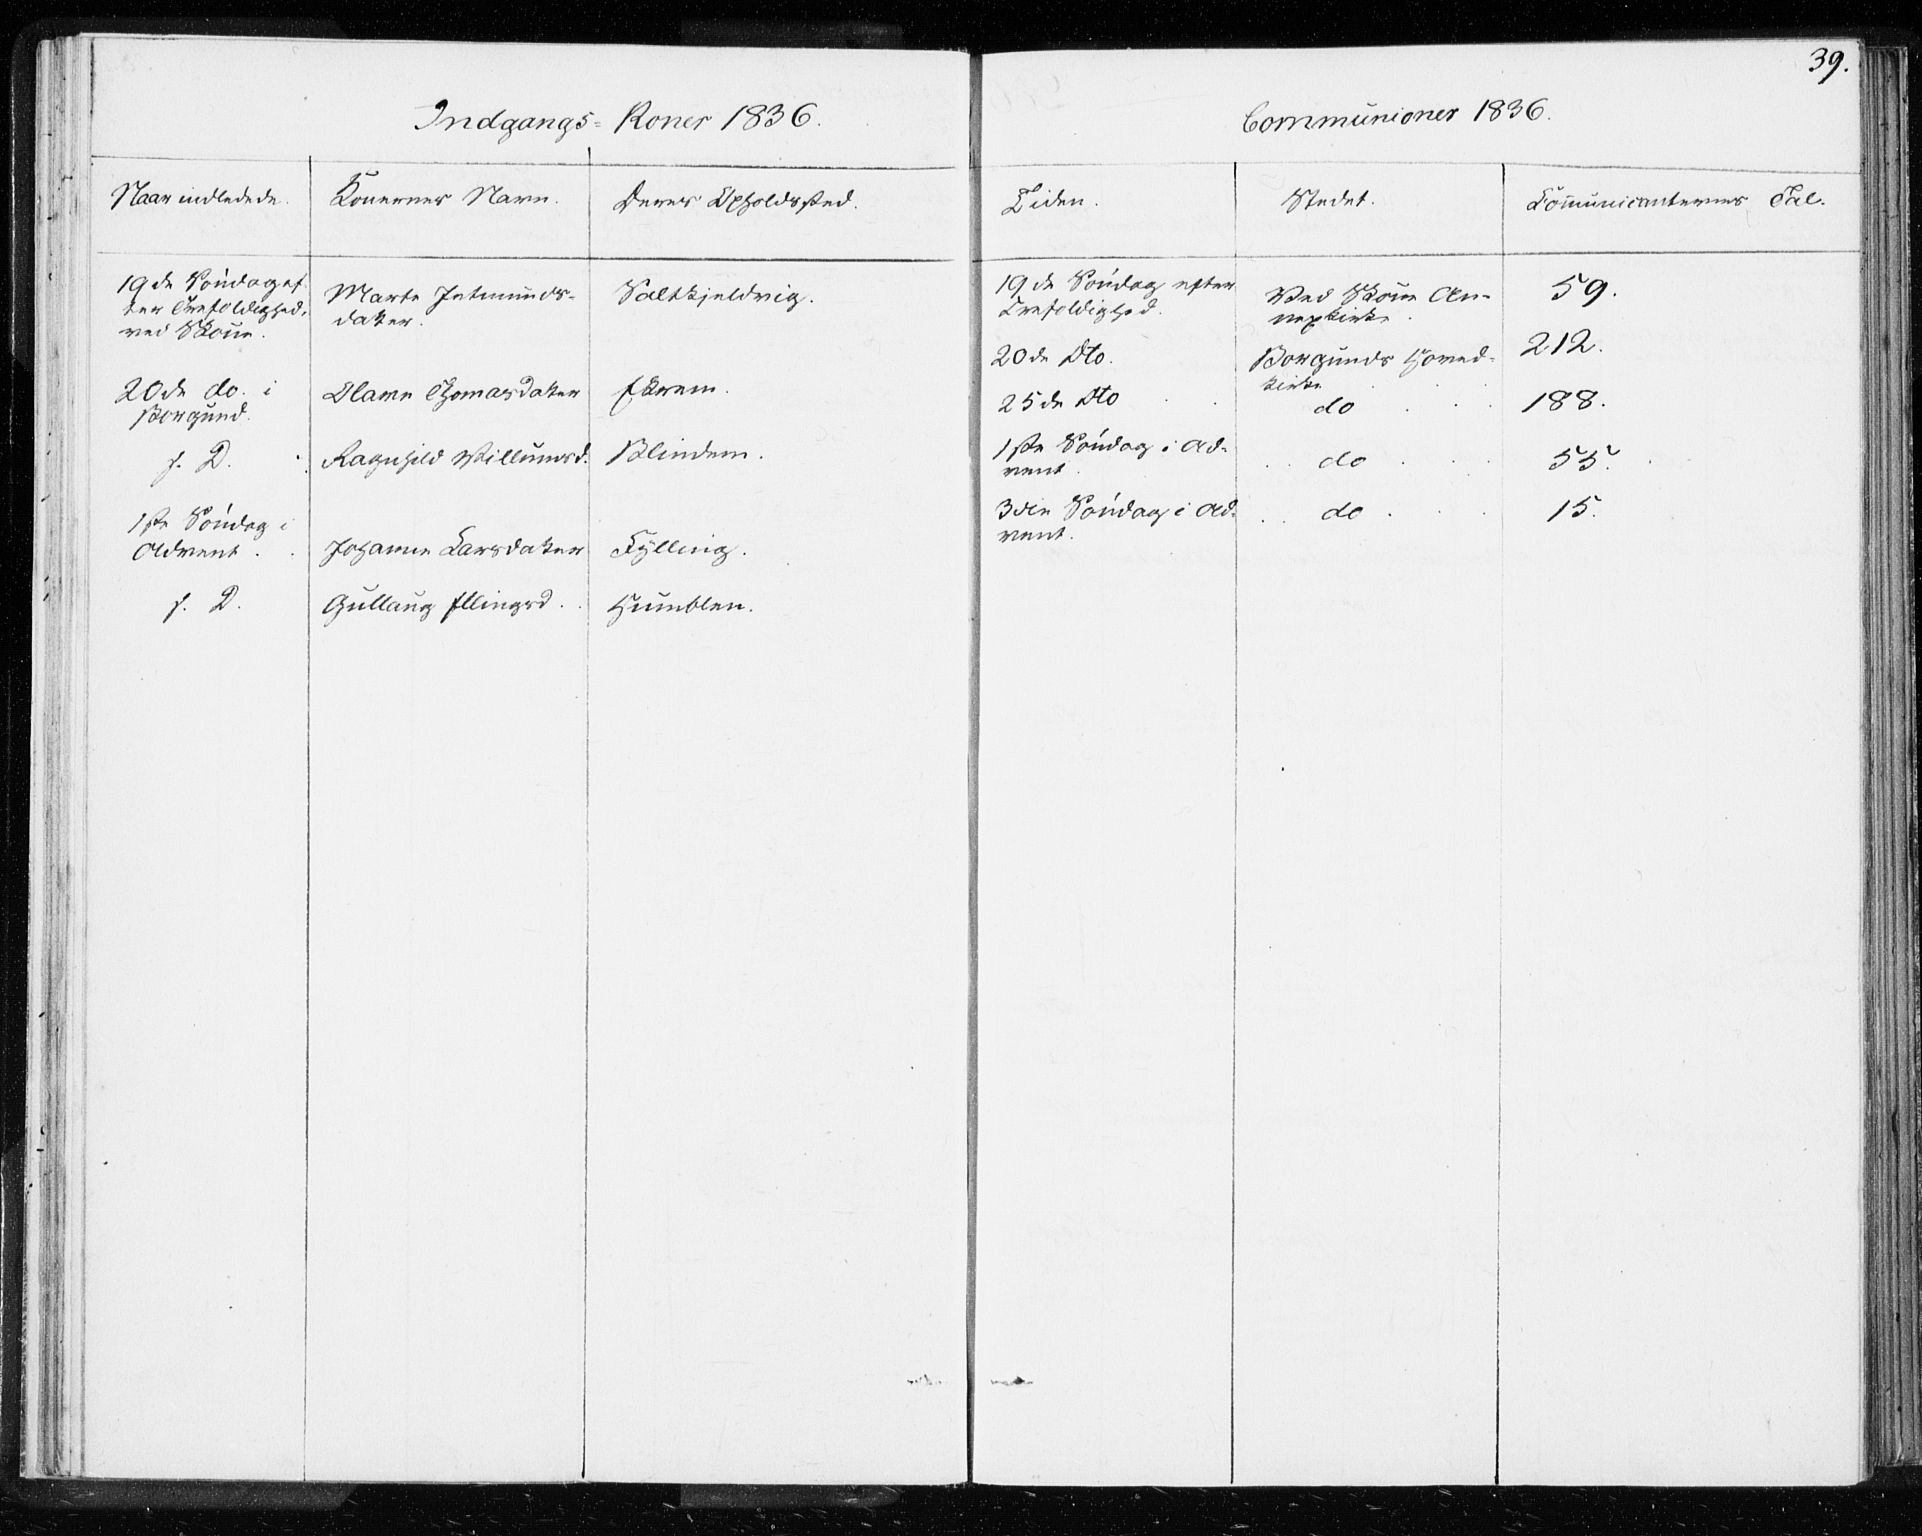 39.
Indgangs-Koner 1836.
Naar indledede. Konernes Navn. Deres Opholdssted.
19de Söndag ef-
ter Trefoldighed,
ved Skoue.
Marte Jetmunds-
datter.
Saltkjeldvig.
20de do. i
Borgund.
Olave Thomasdatter
Ekrem.
s. D. Ragnhild Villumsd. Blindem.
1ste Söndag i
Advent.
Johanne Larsdatter
Fylling.
s. D. Gullaug Ellingsd. Humblen.
Communioner 1836.
Tiden. Stedet. Communicanternes Tal.
19de Söndag efter
Trefoldighed.
Ved Skoue An-
nexkirke.
59.
20de Dto. Borgunds Hoved-
kirke
212.
25de Dto do 188.
1ste Söndag i Ad-
vent.
do 55.
3die Söndag i Ad-
vent.
do 15.